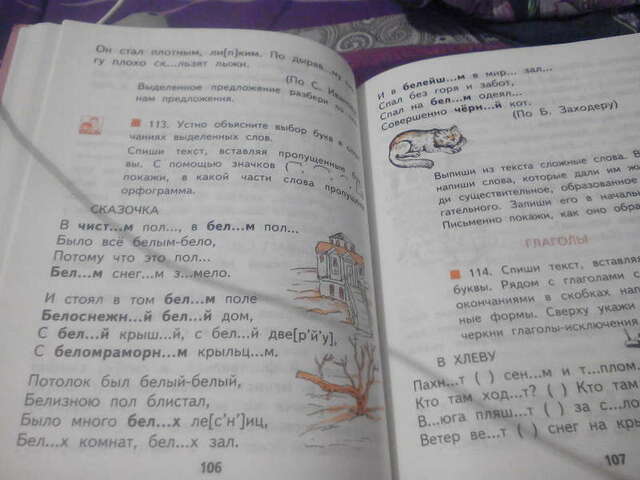 Он стал плотным, ли[п]ким. По дыряв...му
гу плохо ск...льзят лыжи.
(По С.
Выделенное предложение разбери
нам предложения.
113. Устно объясните выбор букв в
чаниях выделенных слов.
Спиши текст, вставляя пропущенные
вы. С помощью значков
покажи, в какой части слова
орфограмма.
СКАЗОЧКА
В чист...м пол..., в бел...м пол...
Было всё белым-бело,
Потому что это пол...
Бел...м снег...м з...мело.
И стоял в том бел...м поле
Белоснежн...й бел...й дом,
С бел...й крыш...й, с бел...й две[р'й'у],
С беломраморн...м крыльц...м.
Потолок был белый-белый,
Белизною пол блистал,
Было много бел...х ле[с'н']иц,
Бел...х комнат, бел...х зал.
106
И в белейш...м в мир... зал...
Спал без горя и забот,
Спал на бел...м одеял...
Совершенно чёрн...й кот.
(По Б. Заходеру)
Выпиши из текста сложные слова.
напиши слова, которые дали им
ди существительное, образованное
гательного. Запиши его в
Письменно покажи, как оно
ГЛАГОЛЫ
114. Спиши текст, вставляя
буквы. Рядом с глаголами
окончаниями в скобках
ные формы. Сверху укажи
черкни глаголы-исключения
В ХЛЕВУ
Пахн...т ( ) сен...м и т...плом.
Кто там ход...т? ( ) Кто там
В...юга пляш...т ( ) за
Ветер ве...т ( ) снег на
107